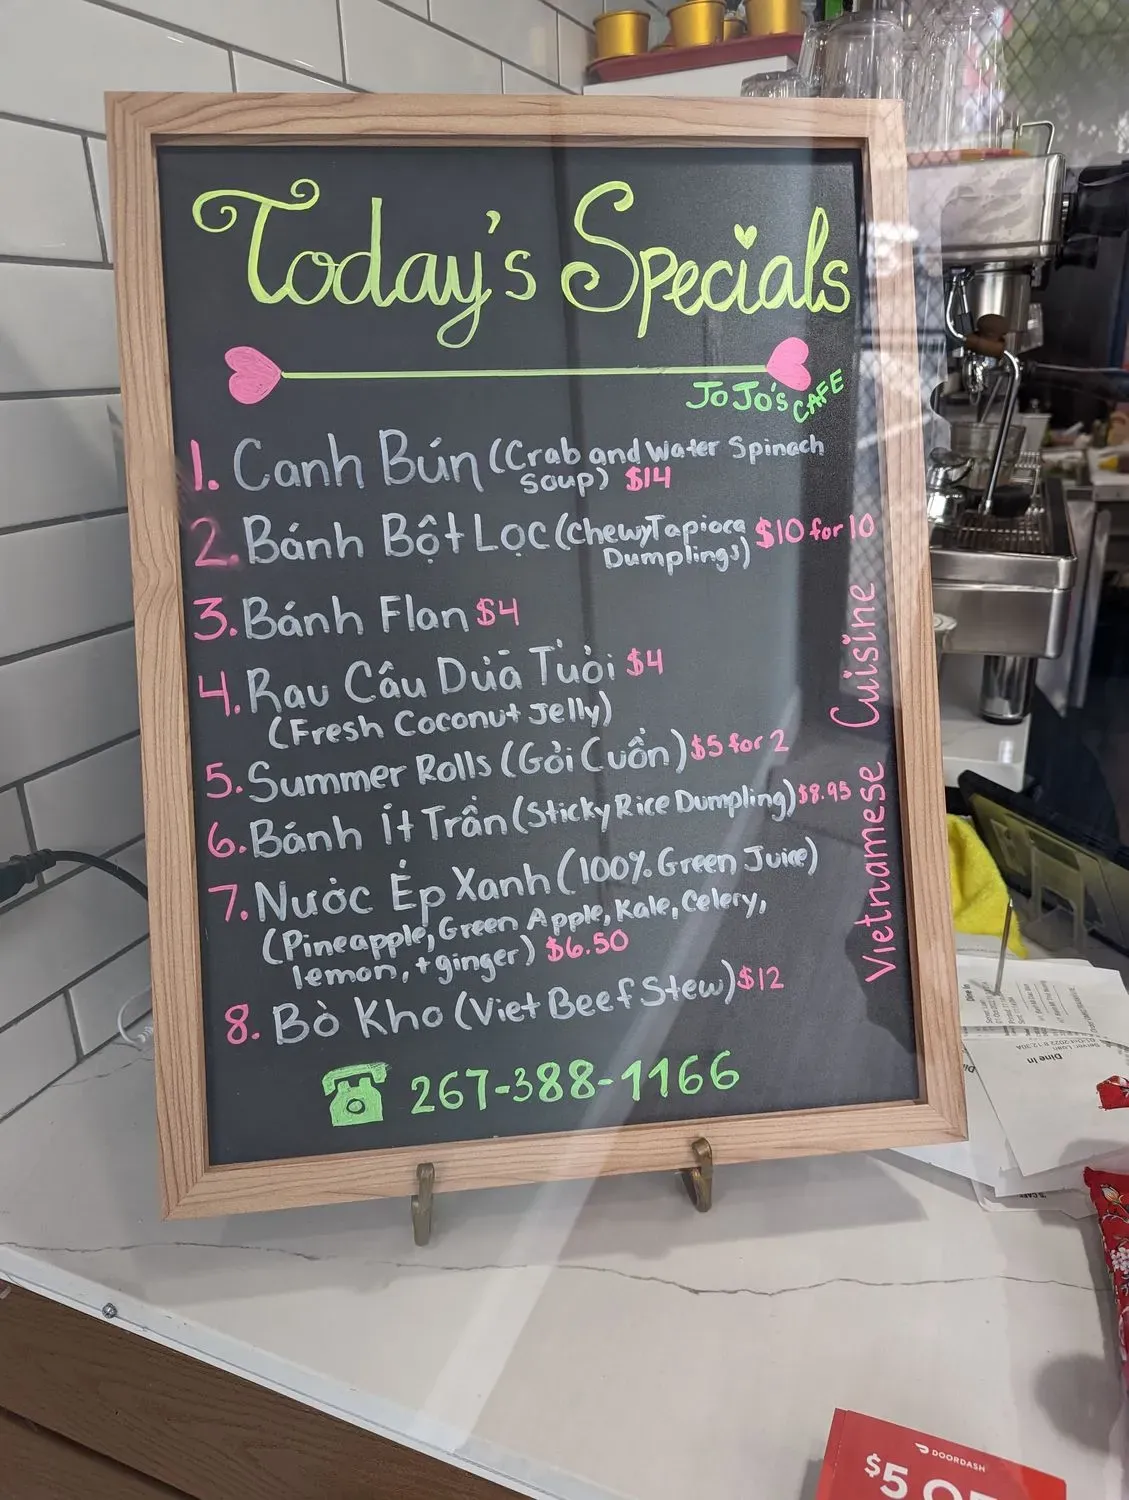 Today's Specials
JoJo's CAFE
1. Canh Bún (Crab and Water Spinach
Soup) $14
2. Bánh Bột Lọc (Chewy Tapioca $10 for 10
Dumplings)
3. Bánh Flan $4
4. Rau Câu Dủã Tưòi $4
(Fresh Coconut Jelly)
5. Summer Rolls (Gỏi Cuốn) $5 for 2
6. Bánh Ít Trần (Sticky Rice Dumpling) $8.95
7. Nước Ép Xanh (100% Green Juice)
(Pineapple, Green Apple, Kale, Celery,
lemon, + ginger) $6.50
8. Bò Kho (Viet Beef Stew) $12
267-388-1166
Vietnamese Cuisine
Dine In
DOORDASH
$5 OFF